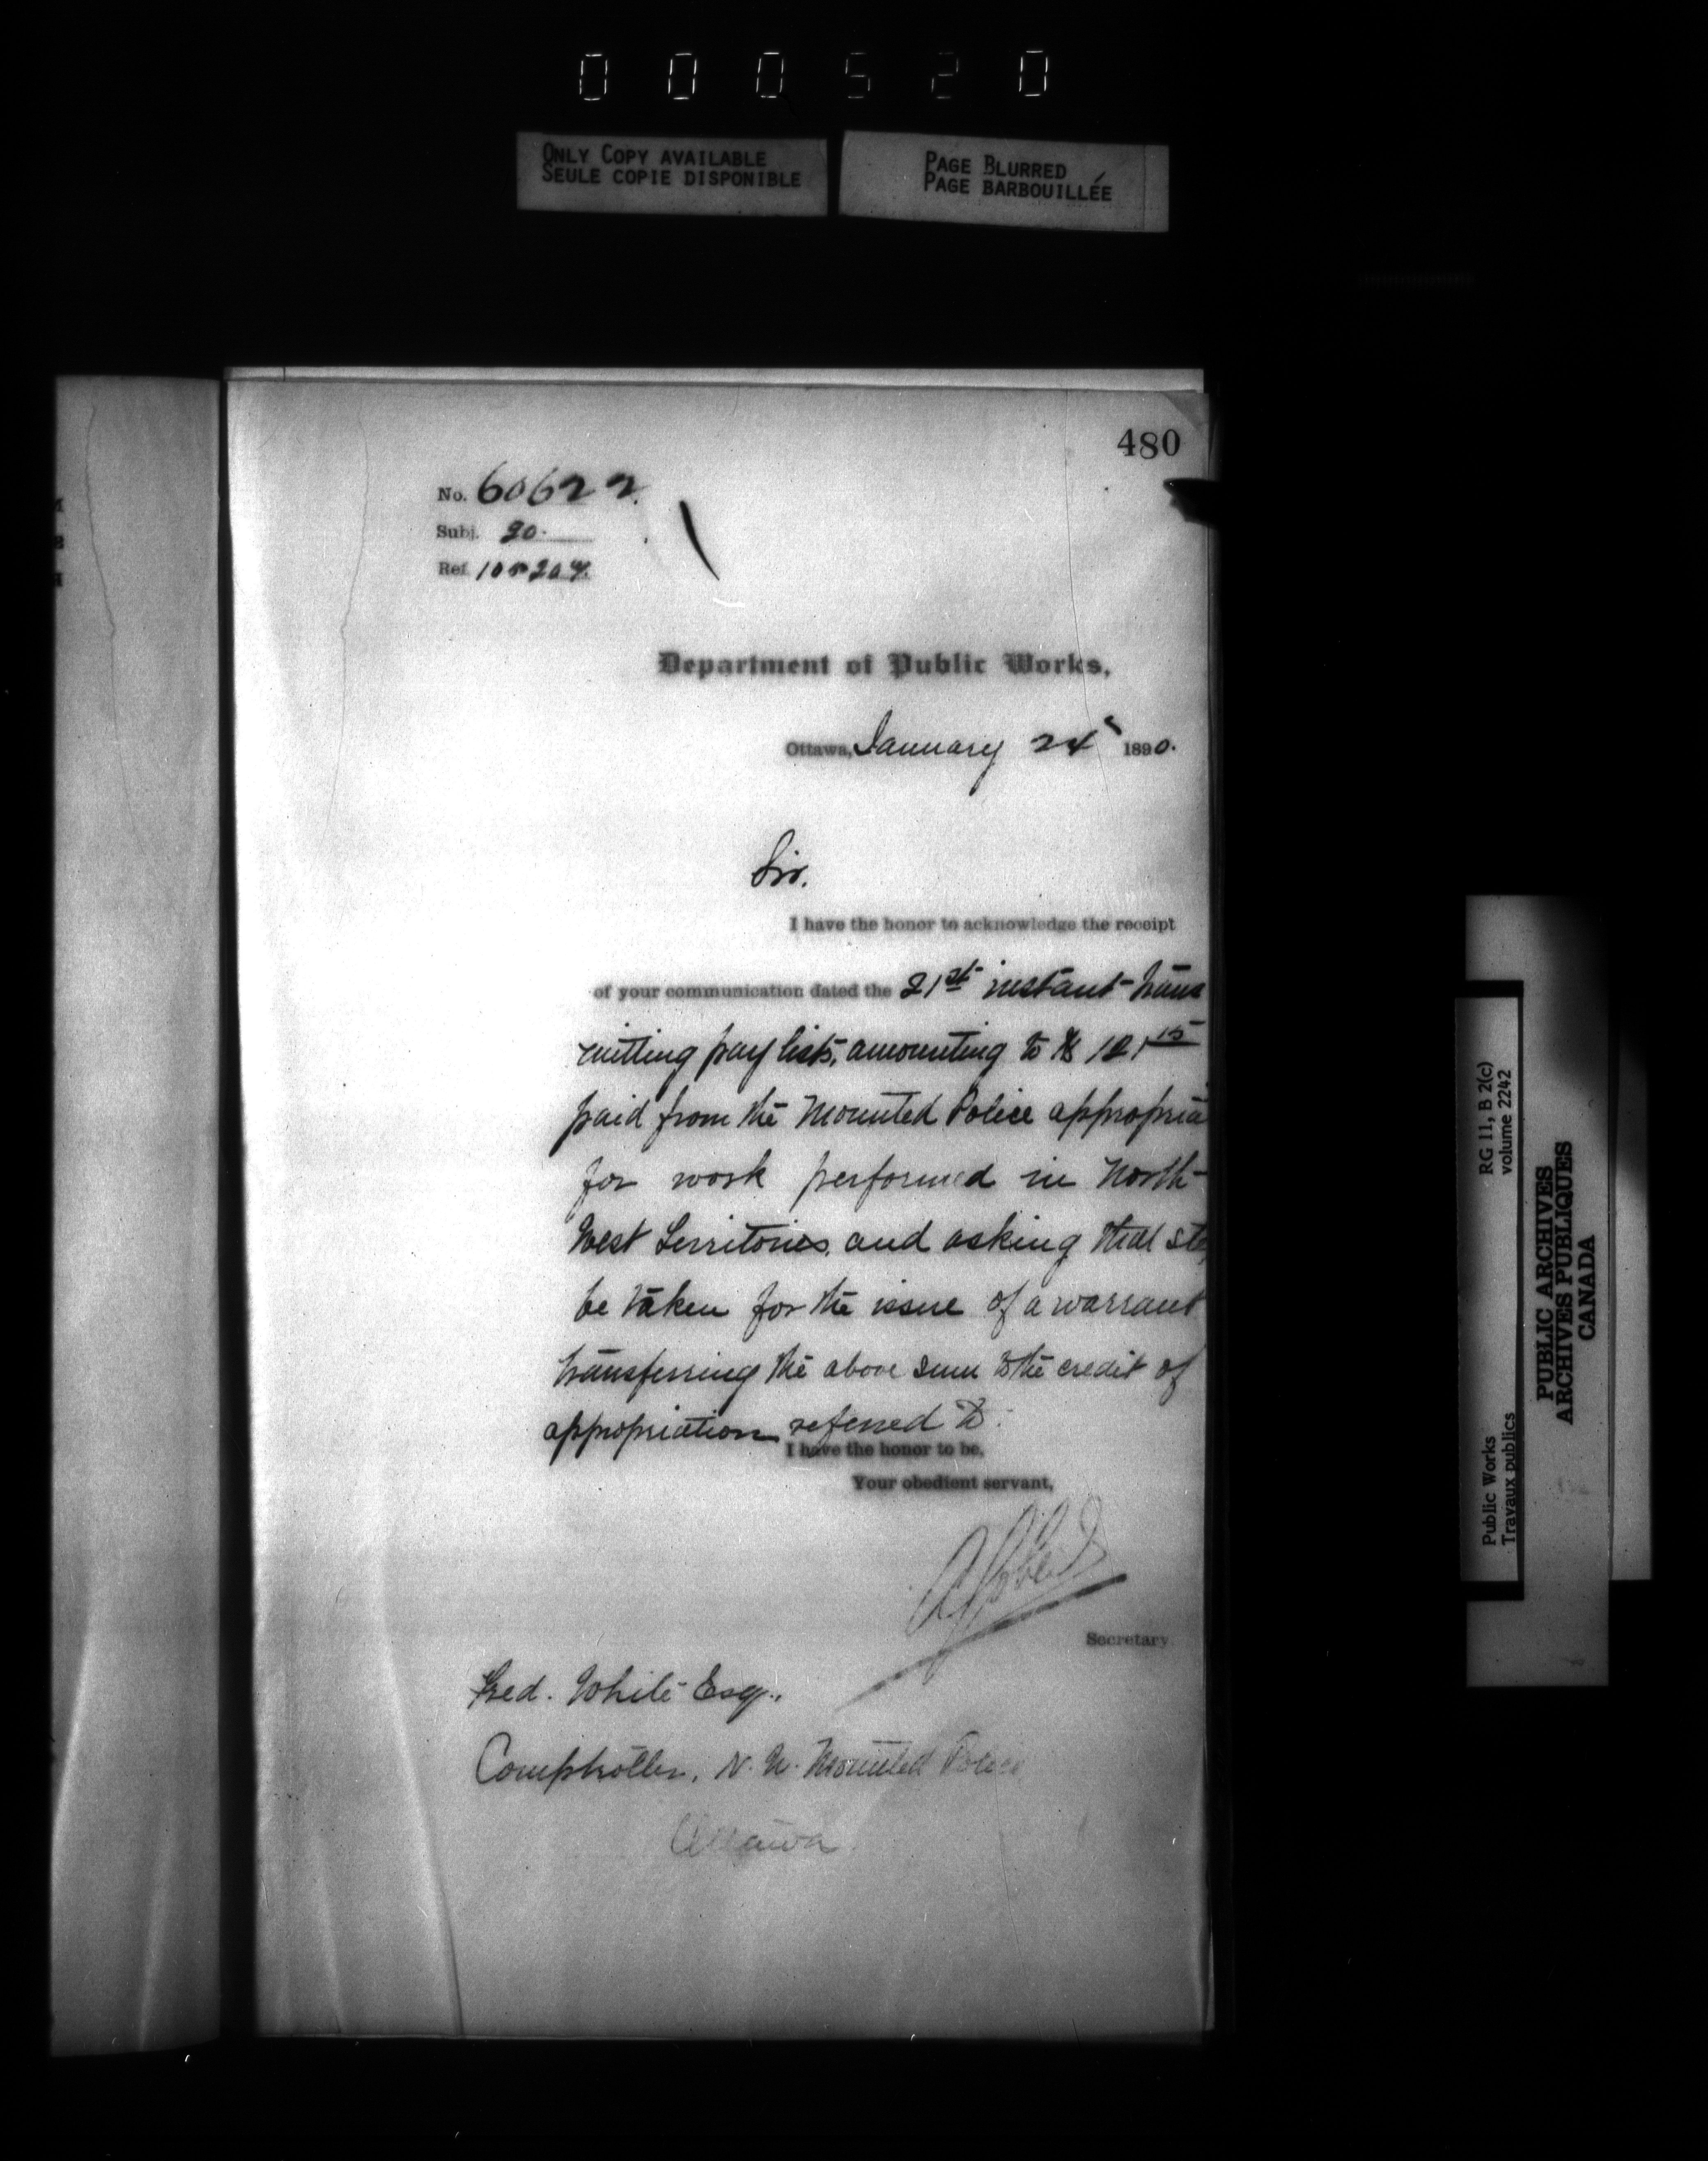 000520
ONLY COPY AVAILABLE
SEULE COPIE DISPONIBLE
PAGE BLURRED
PAGE BARBOUILLÉE
480
No. 60622.
Subj. 20.
Ref.
Department of Public Works,
Ottawa, January 24 1890.
Sir.
I have the honor to acknowledge the receipt
of your communication dated the 21st instant trans
mitting pay lists, amounting to $ 121 15
paid from the Mounted Police appropria
for work performed in North-
West Territories, and asking that ste
be taken for the issue of a warrant
transferring the above sum to the credit of
appropriation referred to.
I have the honor to be,
Your obedient servant,
Secretary
Fred. White Esq.,
Comptroller, N. W. Mounted Police
Ottawa
RG 11, B 2(c)
volume 2242
Public Works
Travaux publics
PUBLIC ARCHIVES
ARCHIVES PUBLIQUES
CANADA